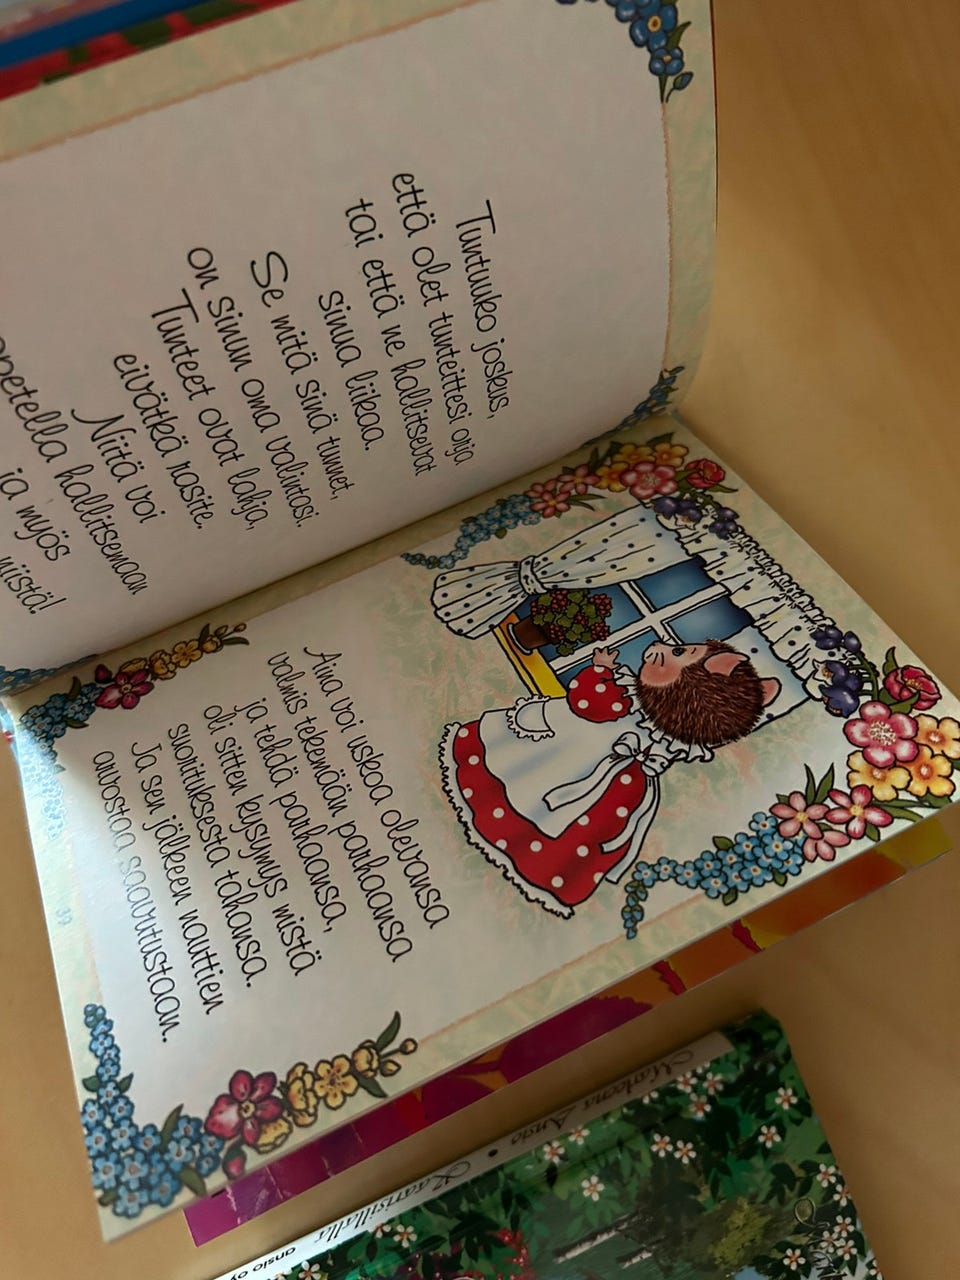 Tuntuuko joskus,
että olet tunteittesi orja
tai että ne hallitsevat
sinua liikaa.
Se mitä sinä tunnet,
on sinun oma valintasi.
Tunteet ovat lahja,
eivätkä rasite.
Niitä voi
opetella hallitsemaan
ja myös
niistä!
Aina voi uskoa olevansa
valmis tekemään parhaansa
ja tehdä parhaansa,
oli sitten kysymys mistä
suorituksesta tahansa.
Ja sen jälkeen nauttien
arvostaa saavutustaan.
Marleena Ansio • Kaarisillalla
ansio oy